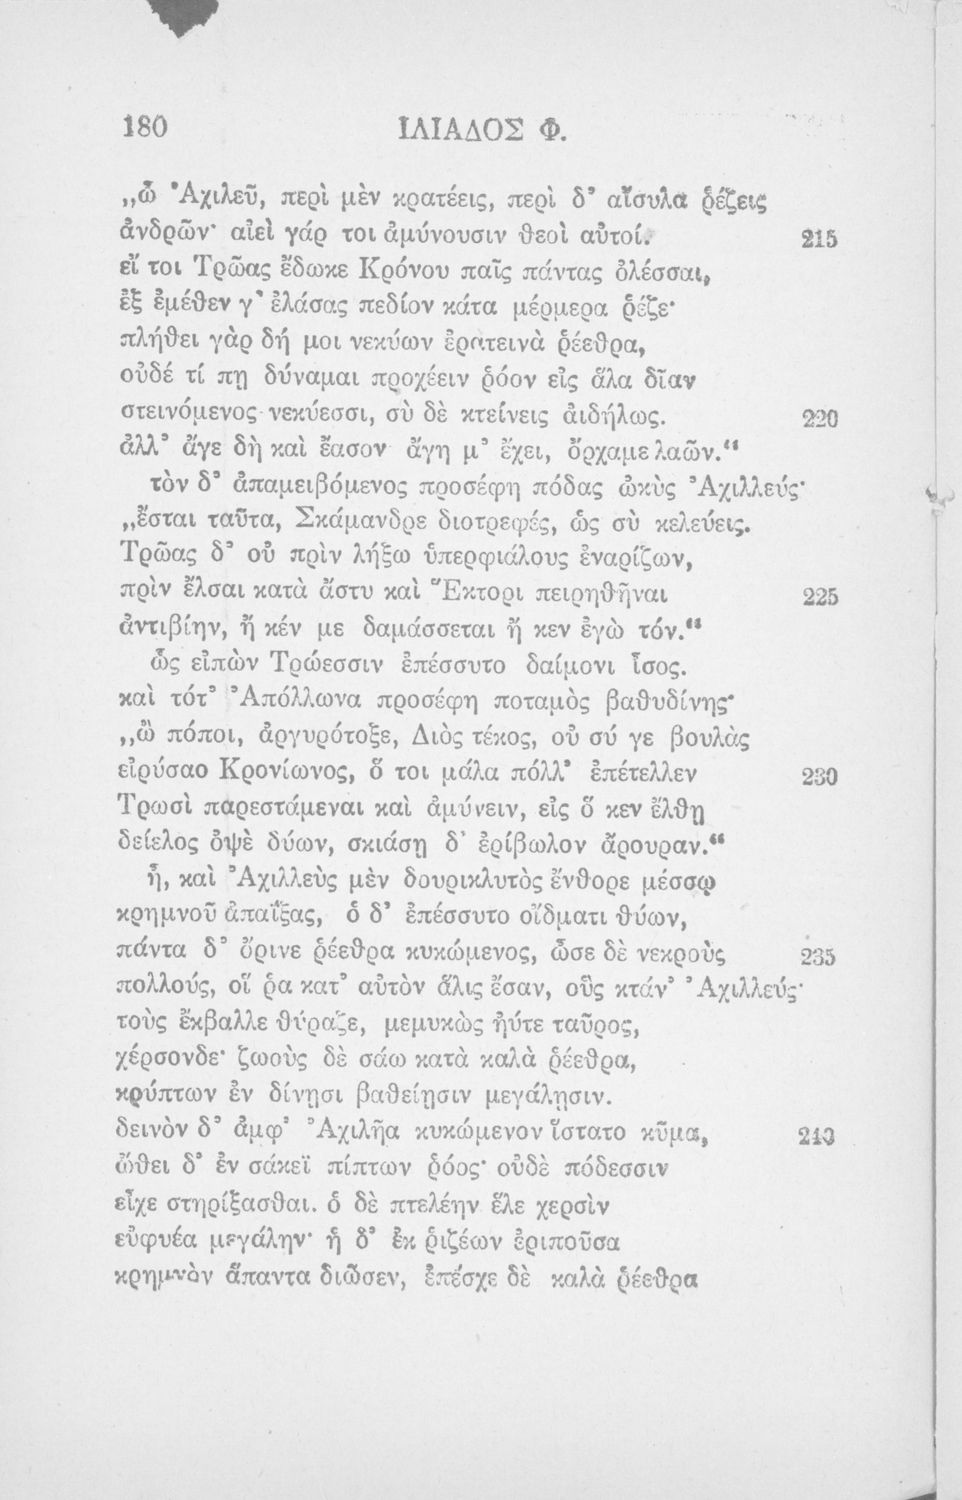 180 ΙΛΙΑΔΟΣ Φ.
„ὦ Ἀχιλεῦ, περὶ μὲν κρατέεις, περὶ δ᾽ αἴσυλα ῥέζεις
ἀνδρῶν· αἰεὶ γάρ τοι ἀμύνουσιν θεοὶ αὐτοί. 215
εἴ τοι Τρῶας ἔδωκε Κρόνου παῖς πάντας ὀλέσσαι,
ἐξ ἐμέθεν γ᾽ ἐλάσας πεδίον κάτα μέρμερα ῥέζε·
πλήθει γὰρ δή μοι νεκύων ἐρατεινὰ ῥέεθρα,
οὐδέ τί πῃ δύναμαι προχέειν ῥόον εἰς ἅλα δῖαν
στεινόμενος νεκύεσσι, σὺ δὲ κτείνεις ἀιδήλως. 220
ἀλλ᾽ ἄγε δὴ καὶ ἔασον· ἄγη μ᾽ ἔχει, ὄρχαμε λαῶν.“
τὸν δ᾽ ἀπαμειβόμενος προσέφη πόδας ὠκὺς Ἀχιλλεύς·
„ἔσται ταῦτα, Σκάμανδρε διοτρεφές, ὡς σὺ κελεύεις.
Τρῶας δ᾽ οὐ πρὶν λήξω ὑπερφιάλους ἐναρίζων,
πρὶν ἔλσαι κατὰ ἄστυ καὶ Ἕκτορι πειρηθῆναι 225
ἀντιβίην, ἤ κέν με δαμάσσεται ἤ κεν ἐγὼ τόν.“
ὣς εἰπὼν Τρώεσσιν ἐπέσσυτο δαίμονι ἶσος.
καὶ τότ᾽ Ἀπόλλωνα προσέφη ποταμὸς βαθυδίνης·
„ὢ πόποι, ἀργυρότοξε, Διὸς τέκος, οὐ σύ γε βουλὰς
εἰρύσαο Κρονίωνος, ὅ τοι μάλα πόλλ᾽ ἐπέτελλεν 230
Τρωσὶ παρεστάμεναι καὶ ἀμύνειν, εἰς ὅ κεν ἔλθῃ
δείελος ὀψὲ δύων, σκιάσῃ δ᾽ ἐρίβωλον ἄρουραν.“
ἦ, καὶ Ἀχιλλεὺς μὲν δουρικλυτὸς ἔνθορε μέσσῳ
κρημνοῦ ἀπαΐξας, ὁ δ᾽ ἐπέσσυτο οἴδματι θύων,
πάντα δ᾽ ὄρινε ῥέεθρα κυκώμενος, ὦσε δὲ νεκροὺς 235
πολλούς, οἵ ῥα κατ᾽ αὐτὸν ἅλις ἔσαν, οὓς κτάν᾽ Ἀχιλλεύς·
τοὺς ἔκβαλλε θύραζε, μεμυκὼς ἠύτε ταῦρος,
χέρσονδε· ζωοὺς δὲ σάω κατὰ καλὰ ῥέεθρα,
κρύπτων ἐν δίνῃσι βαθείῃσιν μεγάλῃσιν.
δεινὸν δ᾽ ἀμφ᾽ Ἀχιλῆα κυκώμενον ἵστατο κῦμα, 240
ὤθει δ᾽ ἐν σάκεϊ πίπτων ῥόος· οὐδὲ πόδεσσιν
εἶχε στηρίξασθαι. ὁ δὲ πτελέην ἕλε χερσὶν
εὐφυέα μεγάλην· ἡ δ᾽ ἐκ ῥιζέων ἐριποῦσα
κρημνὸν ἅπαντα διῶσεν, ἐπέσχε δὲ καλὰ ῥέεθρα